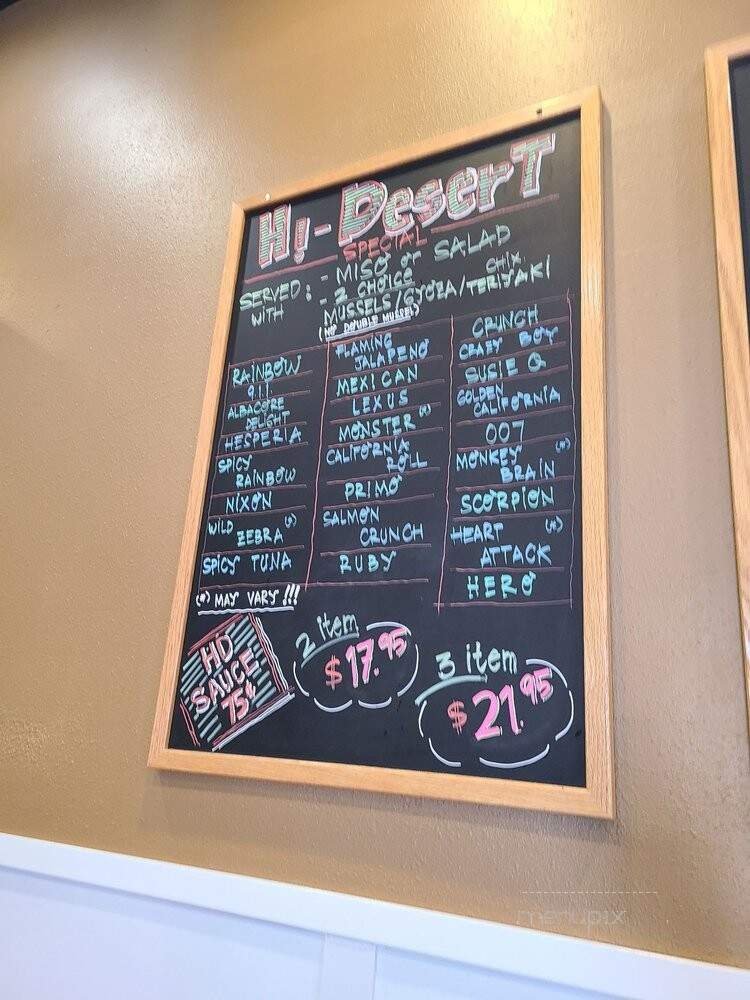 Hi-Desert
SPECIAL
SERVED WITH : - MISO or SALAD
- 2 CHOICE
MUSSELS/GYOZA/CHIX. TERIYAKI
(NO DOUBLE MUSSEL)
RAINBOW
911
ALBACORE
DELIGHT
HESPERIA
SPICY
RAINBOW
NIXON
WILD
ZEBRA (*)
SPICY TUNA
FLAMING
JALAPENO
MEXICAN
LEXUS
MONSTER (*)
CALIFORNIA
ROLL
PRIMO
SALMON
CRUNCH
RUBY
CRUNCH
CRAZY BOY
SUSIE Q
GOLDEN
CALIFORNIA
007
MONKEY (*)
BRAIN
SCORPION
HEART (*)
ATTACK
HERO
(*) MAY VARY !!!
HD
SAUCE
75¢
2 item
$17.95
3 item
$21.95
menupix